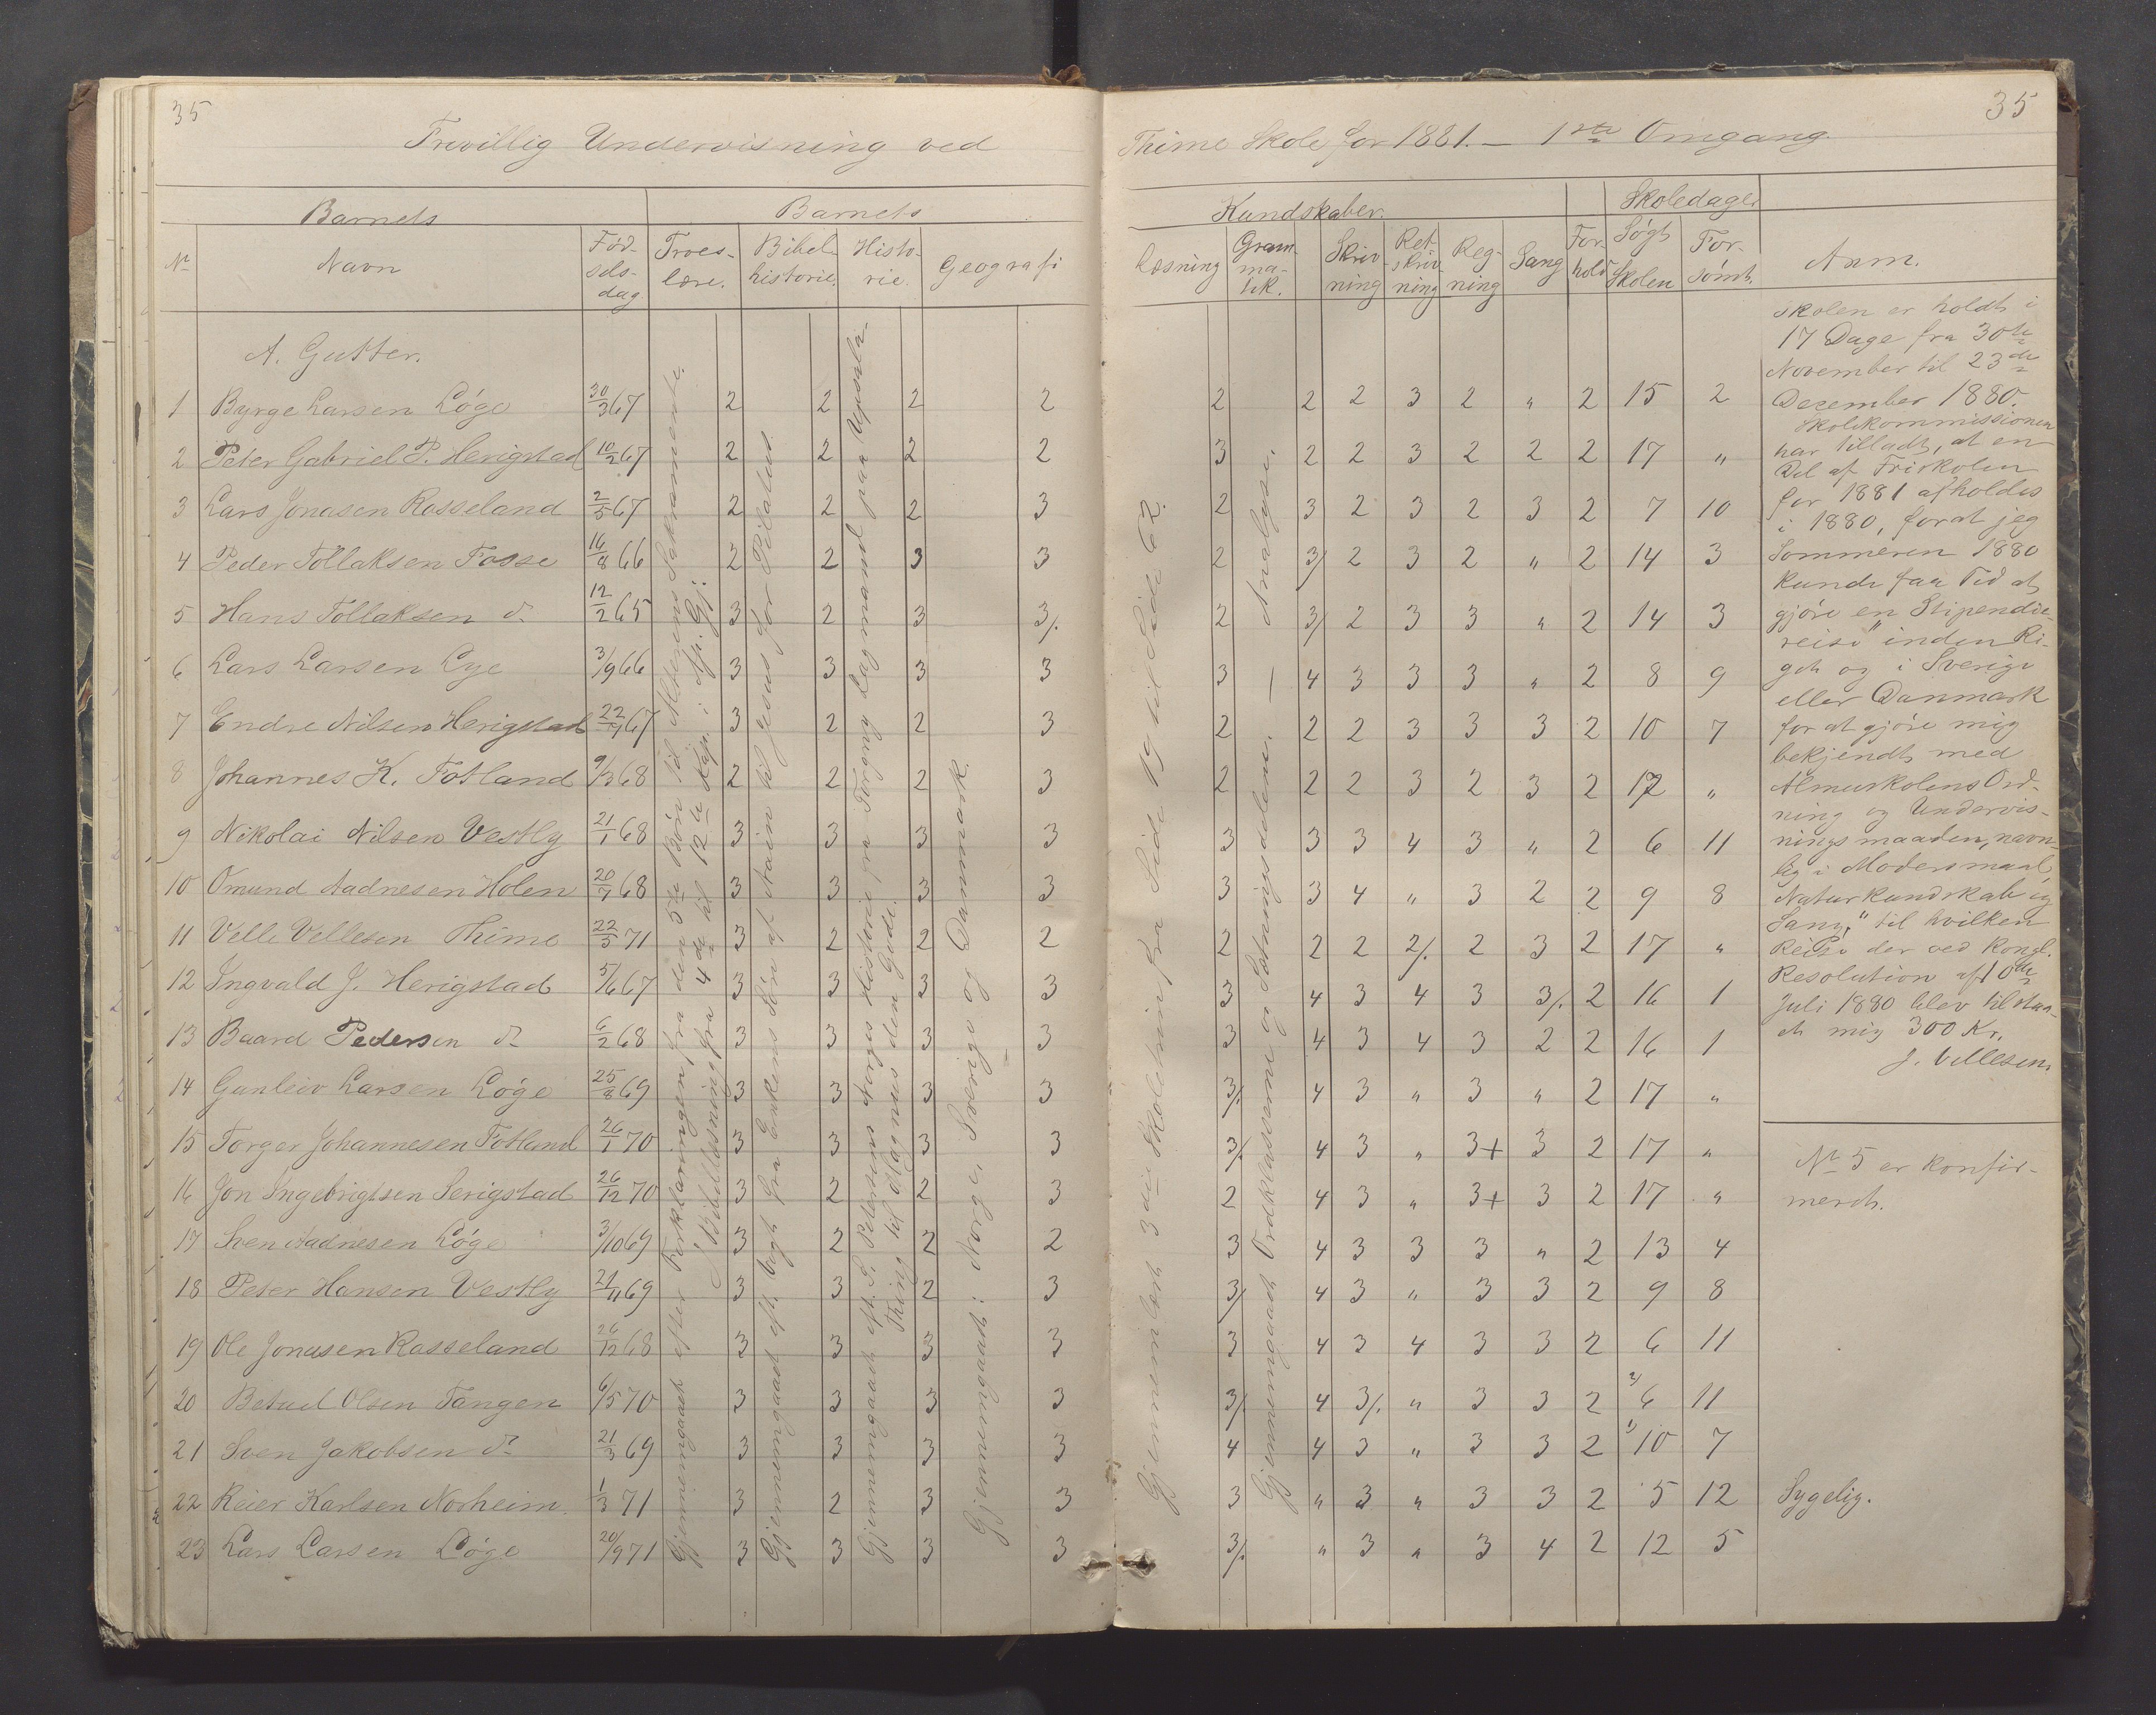 35
Frivillig Undervisning ved
Barnets Barnets
No Navn Fød-selsdag Troeslære. Bibelhistorie. Historie. Geografi
A. Gutter.
1 Byrge Larsen Løge 30/3 67 2 2 2 2
2 Peter Gabriel P. Herigstad 10/2 67 2 2 2 2
3 Lars Jonasen Rosseland 2/5 67 2 2 2 3
4 Peder Tollaksen Fosse 16/8 66 2 2 3 3
5 Hans Tollaksen do 12/2 65 3 2 3 3/.
6 Lars Larsen Lye 3/9 66 3 3 3 3
7 Endre Nilsen Herigstad 22/ 67 3 2 2 3
8 Johannes K. Fotland 9/3 68 2 2 2 3
9 Nikolai Nilsen Vestly 21/1 68 3 3 3 3
10 Omund Aadnesen Holen 20/7 68 3 3 3 3
11 Velle Vellesen Thime 22/5 71 3 2 2 2
12 Ingvald J. Herigstad 5/6 67 3 3 3 3
13 Baard Pedersen do 6/2 68 3 3 3 3
14 Gunleiv Larsen Løge 25/8 69 3 3 3 3
15 Torger Johannesen Fotland 26/1 70 3 3 3 3
16 Jon Ingebrigtsen Serigstad 26/12 70 3 2 2 3
17 Sven Aadnesen Løge 3/10 69 3 2 2 2
18 Peter Hansen Vestly 21/11 69 3 3 2 3
19 Ole Jonasen Rosseland 26/12 68 3 3 3 3
20 Betuel Olsen Tangen 6/5 70 3 3 3 3
21 Sven Jakobsen do 21/3 69 3 3 3 3
22 Reier Karlsen Norheim. 1/3 71 3 2 3 3
23 Lars Larsen Løge 20/9 71 3 3 3 3
Gjennemgaaet efter Forklaringen fra den 5te Bøn til Alterens Sakramente.
I Bibellæsning fra 4de til 12te Kap. i Ap. Gj.
Gjennemgaaet eft. Vogt fra Enkens Søn af Nain til Jesus for Pilatus.
Gjennemgaaet eft. S. Petersens Norges Historie fra Torgny Lagmand paa Upsala-
Thing til Magnus den Gode.
Gjennemgaaet: Norge, Sverige og Danmark.
35
Thime Skole for 1881. — 1ste Omgang.
Kundskaber. Skoledage.
Læsning Grammatik. Skrivning Retskrivning Regning Sang Forhold Søgt Skolen Forsømt. Anm.
2 2 2 3 2 " 2 15 2
3 2 2 3 2 2 2 17 "
2 3 2 3 2 3 2 7 10
2 3/ 2 3 2 " 2 14 3
2 3/ 2 3 3 " 2 14 3
3 4 3 3 3 " 2 8 9
2 2 2 3 3 3 2 10 7
2 2 2 3 2 3 2 17 "
3 3 3 4 3 " 2 6 11
3 3 4 " 3 2 2 9 8
2 2 2 2/. 2 3 2 17 "
3 4 3 4 3 3/. 2 16 1
3 4 3 4 3 2 2 16 1
3/. 4 3 " 3 " 2 17 "
3/. 4 3 " 3+ 3 2 17 "
2 4 3 " 3+ 3 2 17 "
3 4 3 3 3 " 2 13 4
3/ 4 3 " 3 3 2 9 8
3 4 3 4 3 3 2 6 11
3/. 4 3/. " 3 3 2 6 11
4 4 3 " 3 3 2 10 7
3 " 3 " 3 3 2 5 12 Sygelig.
3/. " 3 " 3 4 2 12 5
Gjennemlæst 3die Skoletrin fra Side 19 til Side 62.
Gjennemgaaet Ordklasserne og Sætningsdelene. — Analyse.
Skolen er holdt i
17 Dage fra 30te
November til 23de
Dezember 1880.
Skolekommissionen
har tilladt, at en
Del af Friskolen
for 1881 afholdes
i 1880, forat jeg
Sommeren 1880
kunde faa Tid at
gjøre en Stipendie-
reise "inden Ri-
get og i Sverige
eller Danmark
for at gjøre mig
bekjendt med
Almuskolens Ord-
ning og Undervis-
ningsmaaden, navn-
lig i Modersmaal,
Naturkundskab og
Sang," til hvilken
Reise der ved Kongl.
Resolution af 10de
Juli 1880 blev tilstaa-
et mig 300 Kr.
J. Vellesen.
No 5 er konfir-
meret.